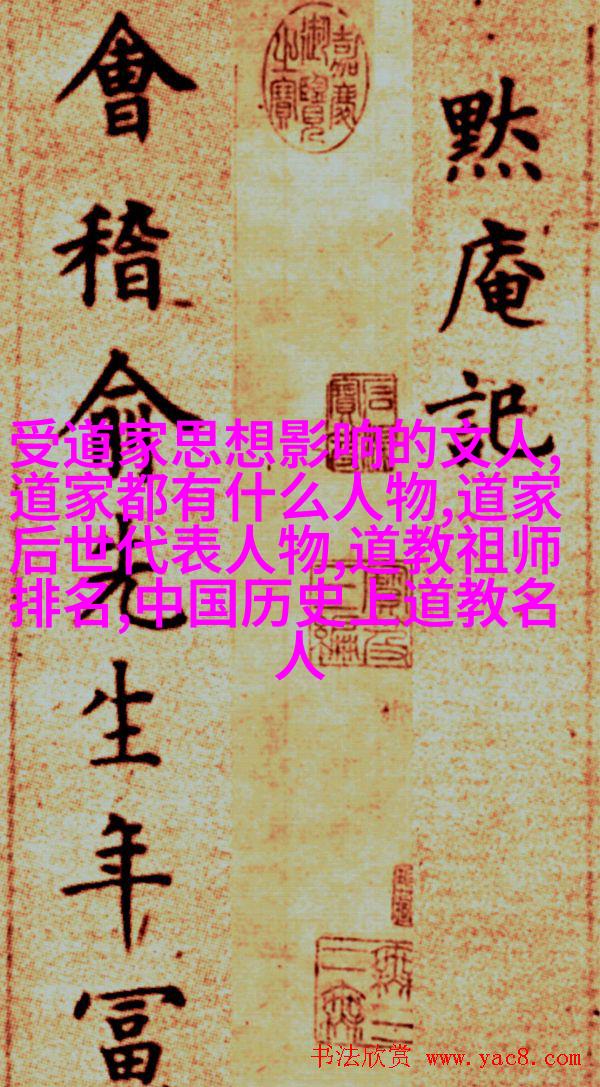 黙庵記
嘉慶
御覽
之寶
會稽俞先生年冨
受道家思想影响的文人,
道家都有什么人物,道家
后世代表人物,道教祖师
排名,中国历史上道教名
人
书法欣赏 www.yac8.com